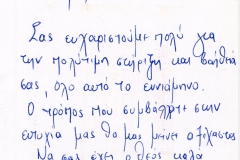 Σας ευχαριστούμε πολύ για
την πολύτιμη στήριξη και βοήθειά
σας, όλο αυτό το εννιάμηνο.
Ο τρόπος που συμβάλλατε στην
ευτυχία μας θα μας μείνει αξέχαστος
Να σας έχει ο Θεός καλά